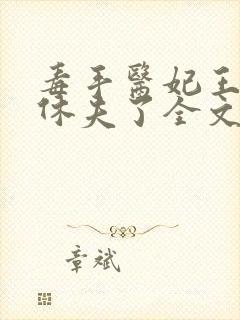 毒手醫妃王
休夫了全文
章斌